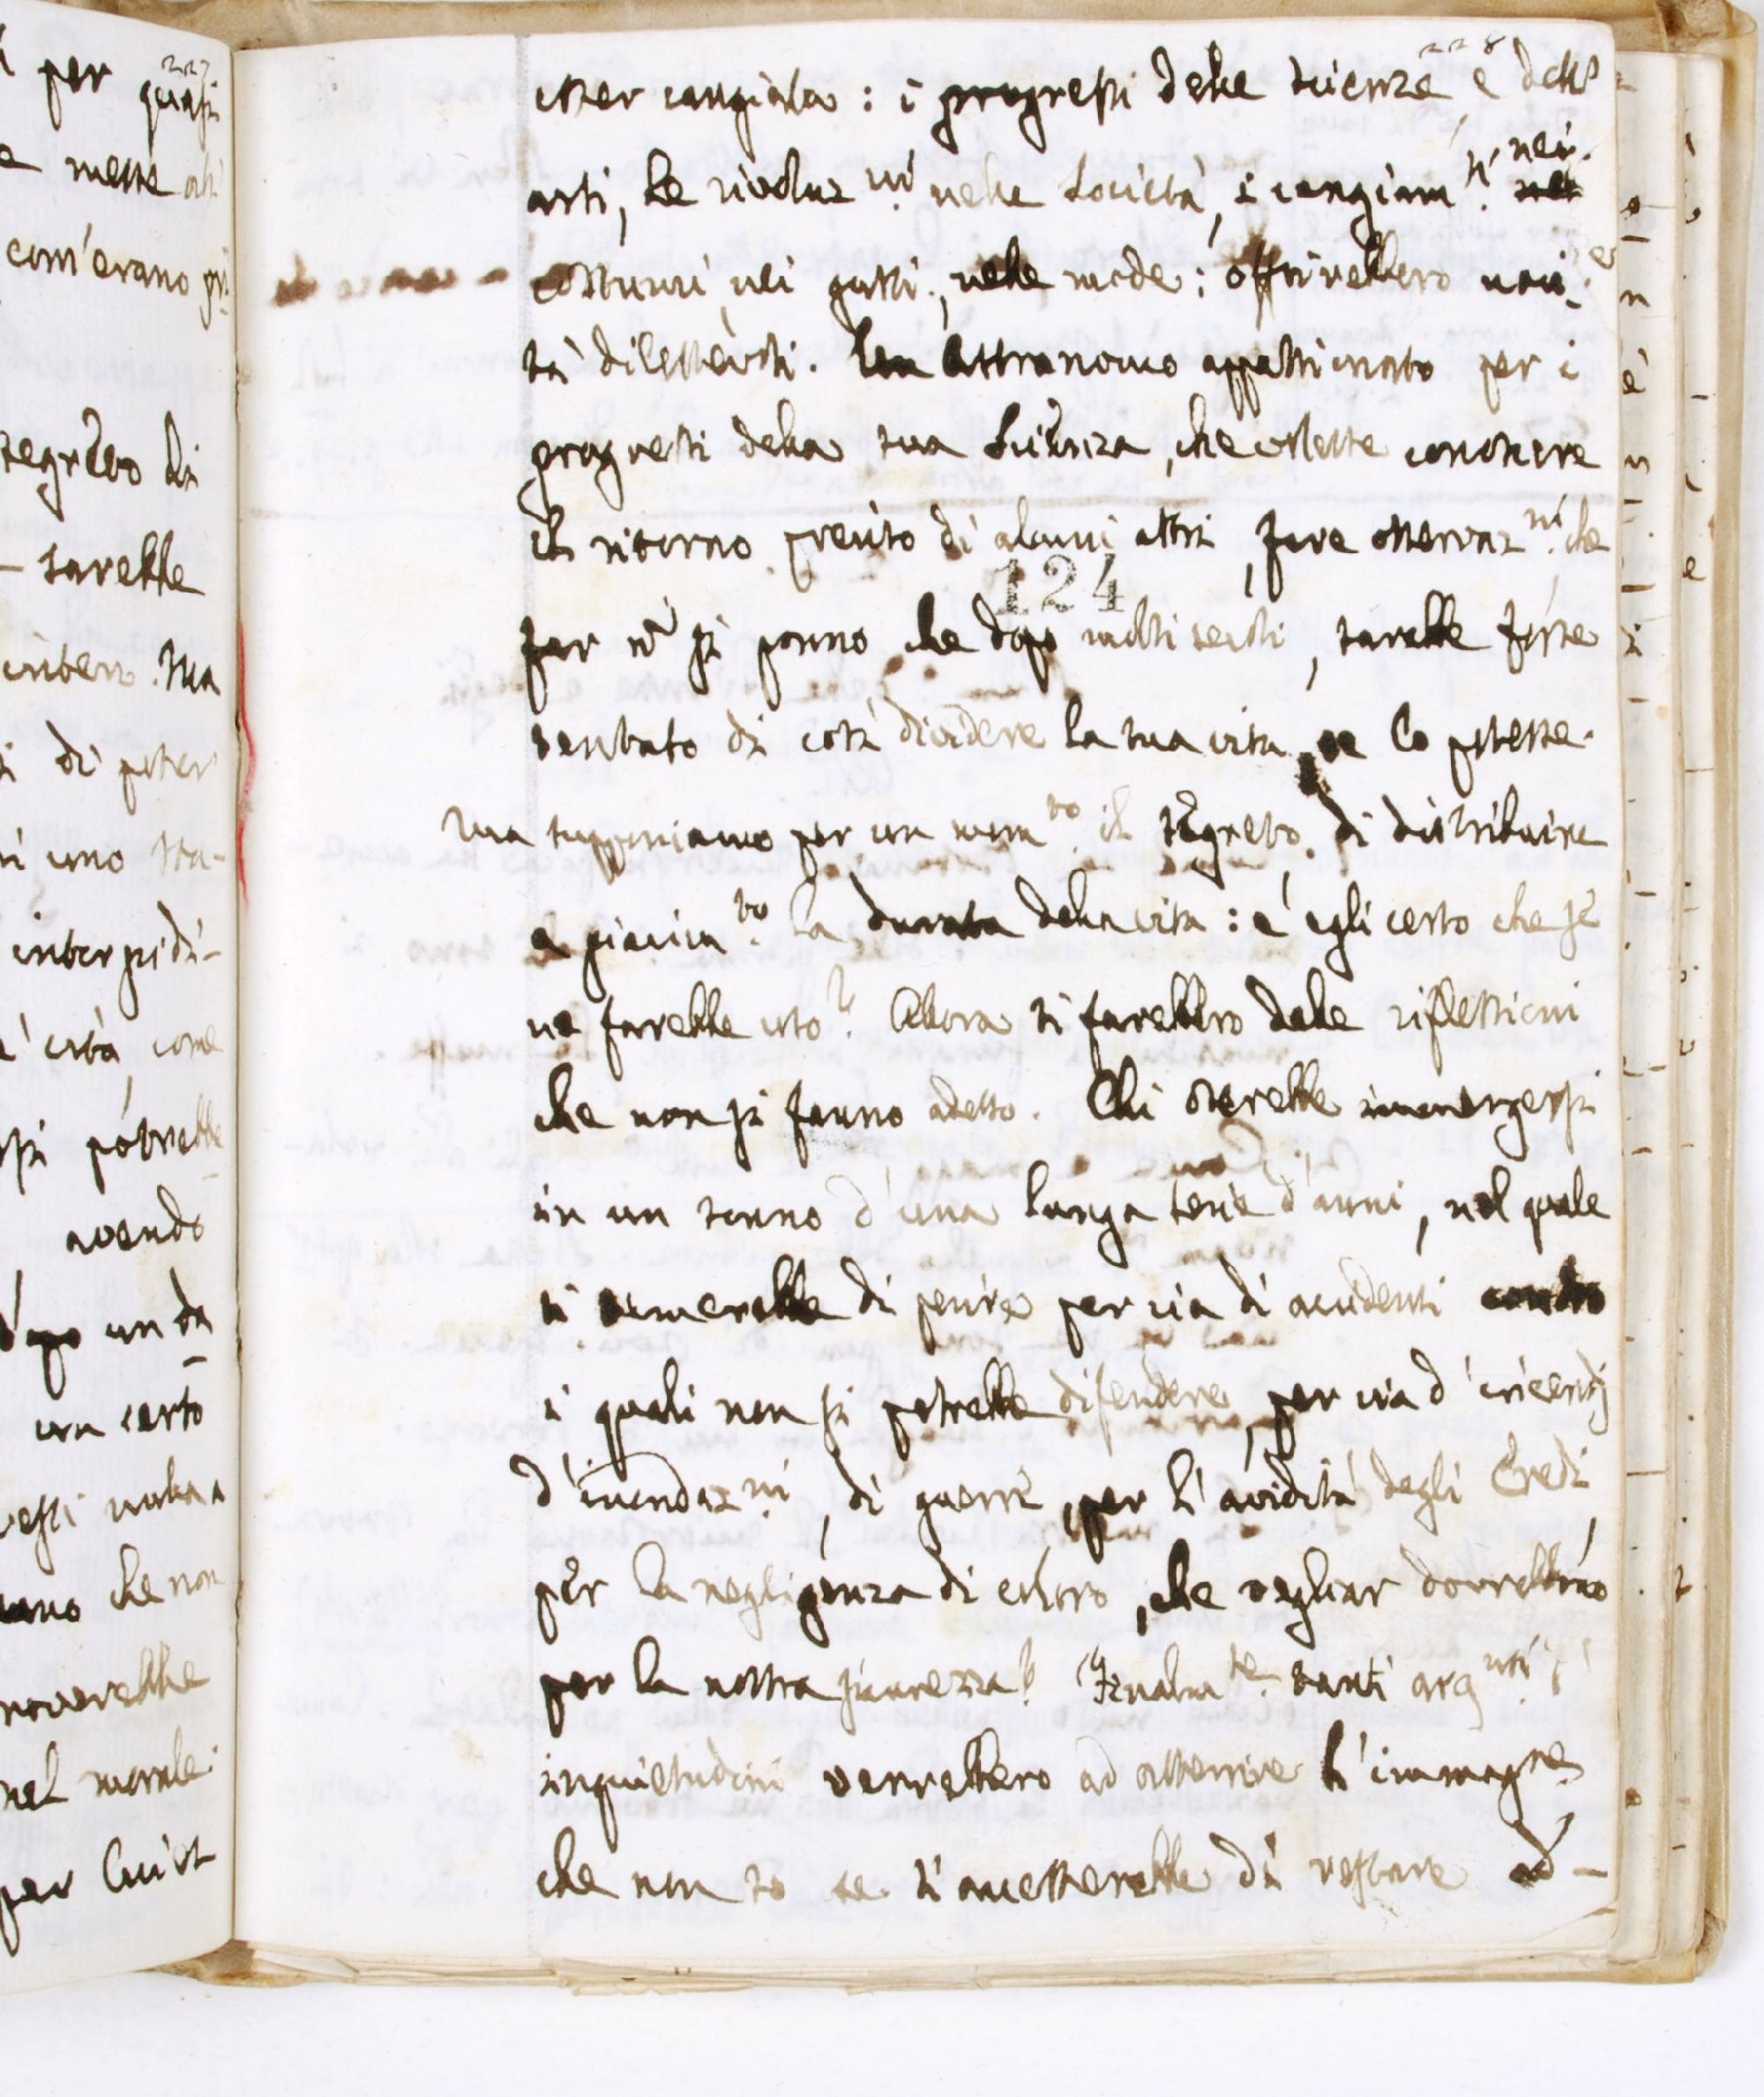 228
esser cangiata : i progressi delle scienze e delle
arti, le rivoluz.ni nelle società, i cangiam.ti nei
costumi, nei gusti, nelle mode ; offrirebbero novi-
tà dilettevoli. Un Astronomo appassionato per i
progressi della sua scienza, che volesse conoscere
il ritorno preciso di alcuni astri, fare osservaz.ni che
far nō si ponno che dopo molti secoli, sarebbe forse
tentato di così dividere la sua vita, se lo potesse.
124
Ma supponiamo per un mom.to il segreto di distribuire
a piacim.to la durata della vita : è egli certo che se
ne farebbe uso? Allora si farebbero delle riflessioni
che non si fanno adesso. Chi oserebbe immergersi
in un sonno d'una lunga serie d'anni, nel quale
si temerebbe di perire per via di accidenti contro
i quali non si potrebbe difendere, per via d'incendj
d'inondaz.ni, di guerre, per l'avidità degli Eredi,
per la negligenza di coloro, che vegliar dovrebbero
per la nostra sicurezza? Finalm.te tanti arg.nti
inquietudini verrebbero ad atterrire l'immag.ne
che non so se si accetterebbe di restare ad-
227
per quasi
e messe
com'erano pri-
segreto di
sarebbe
Ma
di poter
uno sta-
intorpidi-
età, come
si potrebbe
avendo
dopo un da
un certo
che non
moverebbe
nel morale
per lui